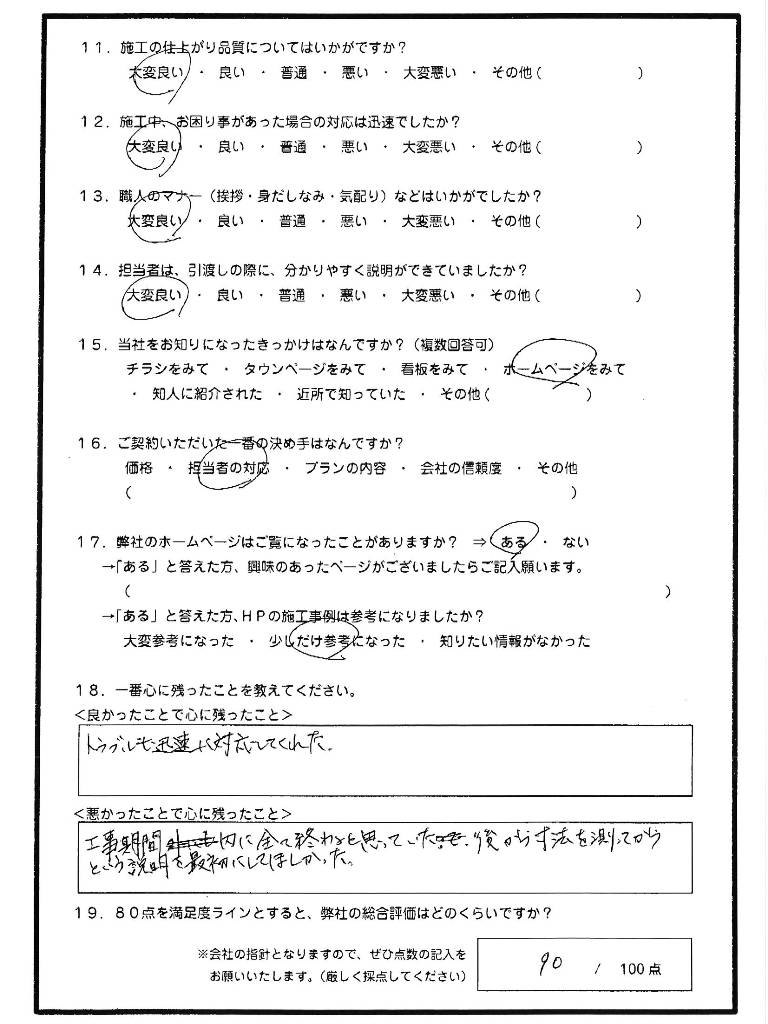 11．施工の仕上がり品質についてはいかがですか？
大変良い ・ 良い ・ 普通 ・ 悪い ・ 大変悪い ・ その他（ ）
12．施工中、お困り事があった場合の対応は迅速でしたか？
大変良い ・ 良い ・ 普通 ・ 悪い ・ 大変悪い ・ その他（ ）
13．職人のマナー（挨拶・身だしなみ・気配り）などはいかがでしたか？
大変良い ・ 良い ・ 普通 ・ 悪い ・ 大変悪い ・ その他（ ）
14．担当者は、引渡しの際に、分かりやすく説明ができていましたか？
大変良い ・ 良い ・ 普通 ・ 悪い ・ 大変悪い ・ その他（ ）
15．当社をお知りになったきっかけはなんですか？（複数回答可）
チラシをみて ・ タウンページをみて ・ 看板をみて ・ ホームページをみて
・ 知人に紹介された ・ 近所で知っていた ・ その他（ ）
16．ご契約いただいた一番の決め手はなんですか？
価格 ・ 担当者の対応 ・ プランの内容 ・ 会社の信頼度 ・ その他
（ ）
17．弊社のホームページはご覧になったことがありますか？ ⇒ ある ・ ない
→「ある」と答えた方、興味のあったページがございましたらご記入願います。
（ ）
→「ある」と答えた方、ＨＰの施工事例は参考になりましたか？
大変参考になった ・ 少しだけ参考になった ・ 知りたい情報がなかった
18．一番心に残ったことを教えてください。
＜良かったことで心に残ったこと＞
トラブルも迅速に対応してくれた。
＜悪かったことで心に残ったこと＞
工事期間内に全て終わると思っていた。後から寸法を測ってから
という説明を最初にしてほしかった。
19．80点を満足度ラインとすると、弊社の総合評価はどのくらいですか？
※会社の指針となりますので、ぜひ点数の記入を
お願いいたします。（厳しく採点してください）
90 / 100点